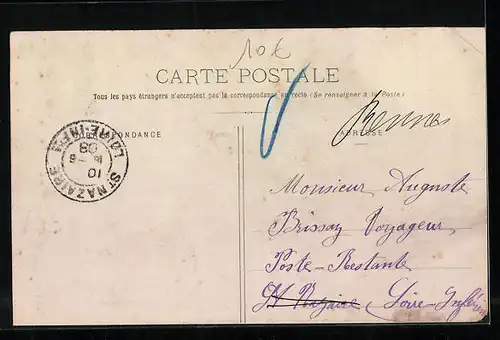 10€
CARTE POSTALE
Tous les pays étrangers n'acceptent pas la correspondance au recto (Se renseigner à la Poste)
CORRESPONDANCE
ADRESSE
Rennes
ST NAZAIRE
LOIRE-INFRE
10
16 - 6
09
Monsieur Auguste
Brissay Voyageur
Poste-Restante
St Nazaire (Loire-Inférieure